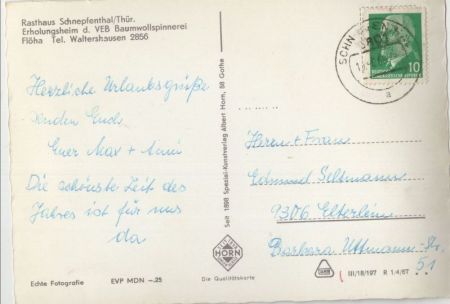 Rasthaus Schnepfenthal/Thür.
Erholungsheim d. VEB Baumwollspinnerei
Flöha Tel. Waltershausen 2856
Herzliche Urlaubsgrüße
senden Euch
Euer Max + Anni
Die schönste Zeit des
Jahres ist für uns
da
Echte Fotografie
EVP MDN -.25
Seit 1898 Spezial-Kunstverlag Albert Horn, 58 Gotha
HORN
Die Qualitätskarte
SCHN
a
10
Herrn + Frau
Edmund Seltmann
9306 Elterlein
Barbara Uttmann-Str.
51
III/18/197 R 1/4/67